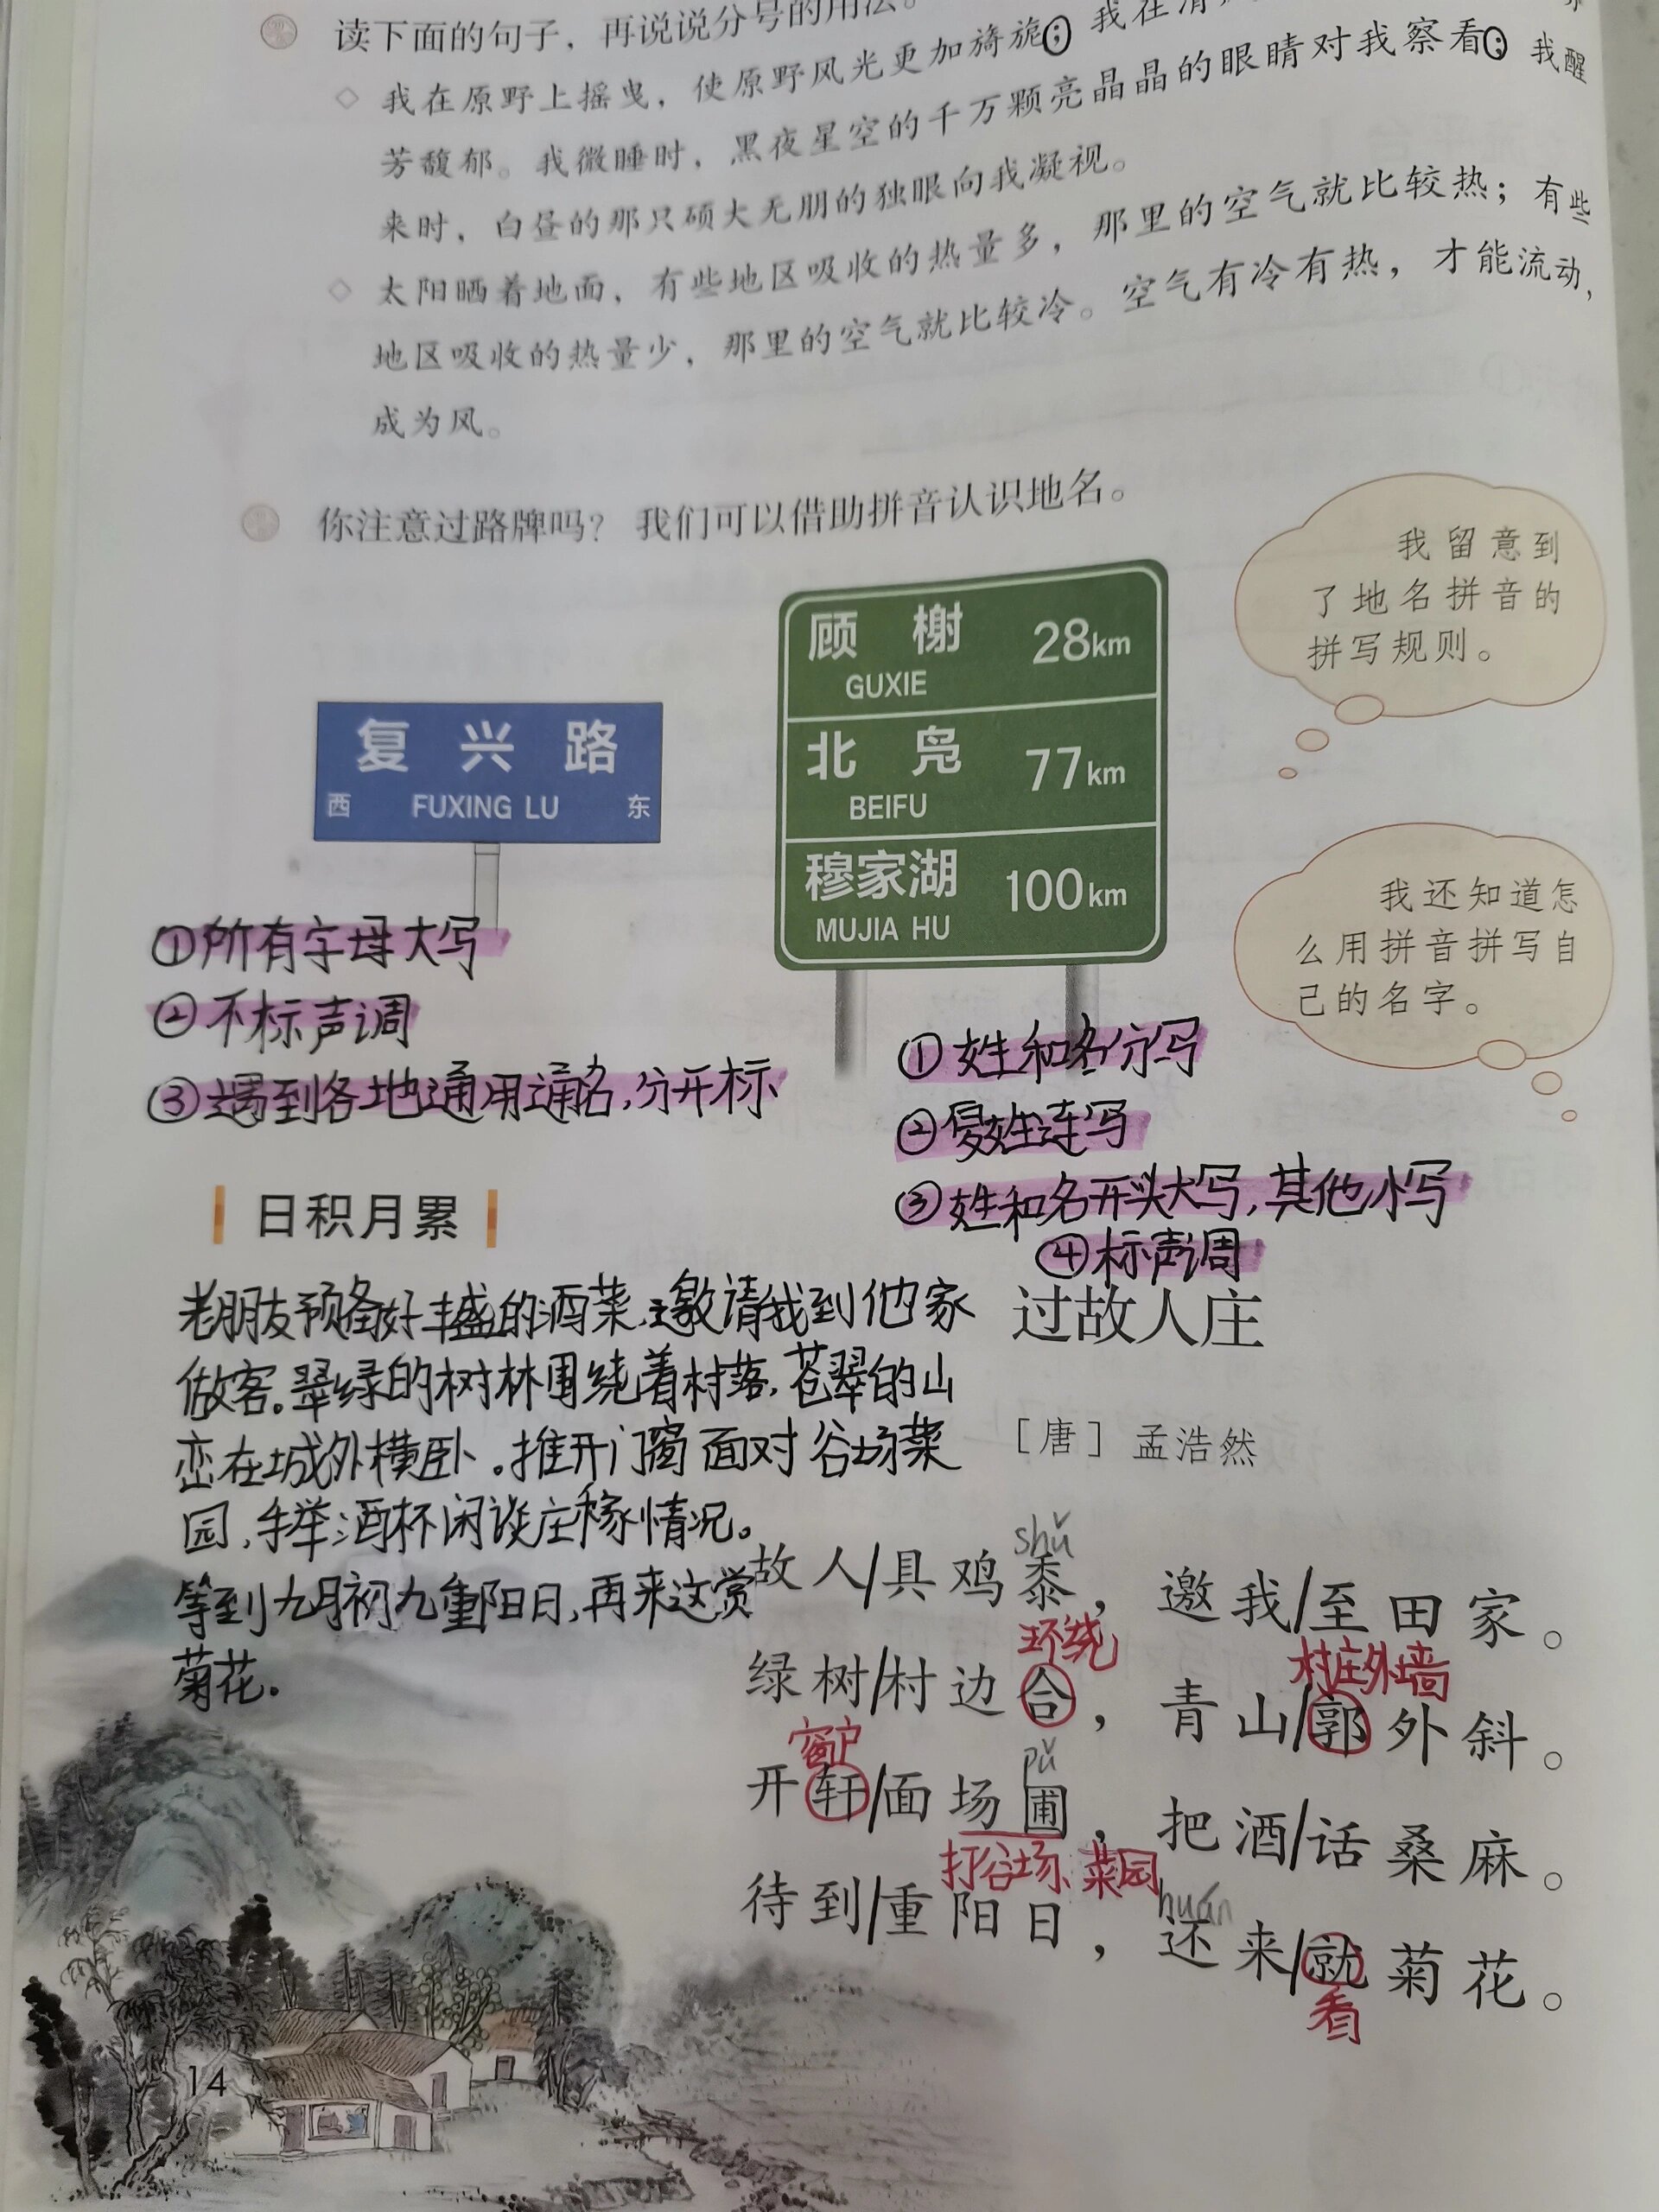 读下面的句子，再说说分号的用法。
我在原野上摇曳，使原野风光更加旖旎；我在清
芳馥郁。我微睡时，黑夜星空的千万颗亮晶晶的眼睛对我察看；我醒
来时，白昼的那只硕大无朋的独眼向我凝视。
太阳晒着地面，有些地区吸收的热量多，那里的空气就比较热；有些
地区吸收的热量少，那里的空气就比较冷。空气有冷有热，才能流动，
成为风。
你注意过路牌吗？我们可以借助拼音认识地名。
我留意到
了地名拼音的
拼写规则。
复兴路
西 FUXING LU 东
顾榭 28km
GUXIE
北凫 77km
BEIFU
穆家湖 100km
MUJIA HU
我还知道怎
么用拼音拼写自
己的名字。
①所有字母大写
②不标声调
③遇到各地通用通名,分开标
①姓和名分写
②复姓连写
③姓和名开头大写,其他小写
④标声调
日积月累
老朋友预备好丰盛的酒菜,邀请我到他家
做客。翠绿的树林围绕着村落,苍翠的山
峦在城外横卧。推开门窗面对谷场菜
园,手举酒杯闲谈庄稼情况。
等到九月初九重阳日,再来这赏
菊花。
过故人庄
［唐］孟浩然
shǔ
故人/具鸡黍，邀我/至田家。
环绕 村庄外墙
绿树/村边合，青山/郭外斜。
窗户 pǔ
开轩/面场圃，把酒/话桑麻。
打谷场、菜园 huán
待到/重阳日，还来/就菊花。
看
14